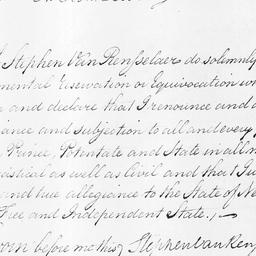 Stephen Van Rensselaer do solemnly
mental reservation or Equivocation w
and declare that I renounce and a
iance and subjection to all and every
Prince, Potentate and State in all m
iastical as well as Civil and that I w
and true allegiance to the State of Ne
Free and Independent State.
orn before me this Stephen van Ren